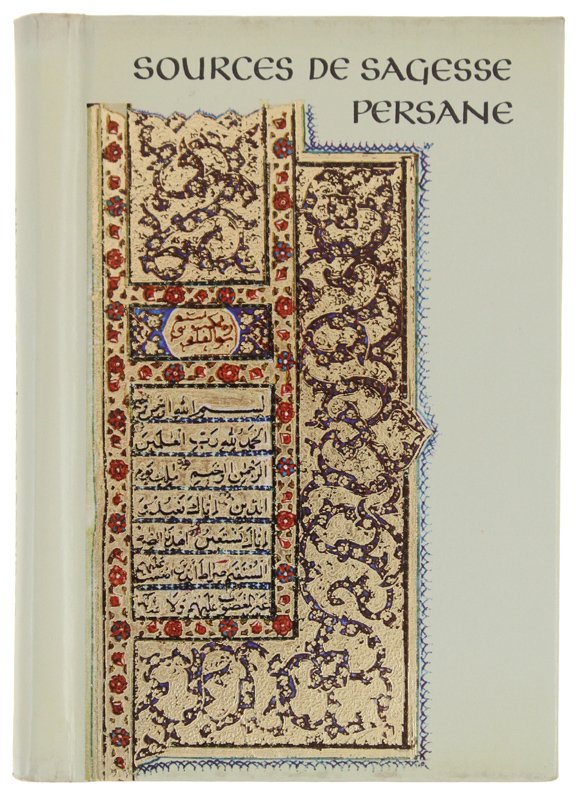 SOURCES DE SAGESSE
PERSANE
بسم الله الرحمن
الحمد لله رب العلمين
الرحمن الرحيم ملك يوم
الدين اياك نعبد و
اياك نستعين اهدنا
المستقيم صراط الذين انعمت عليهم
غير المغضوب عليهم ولا